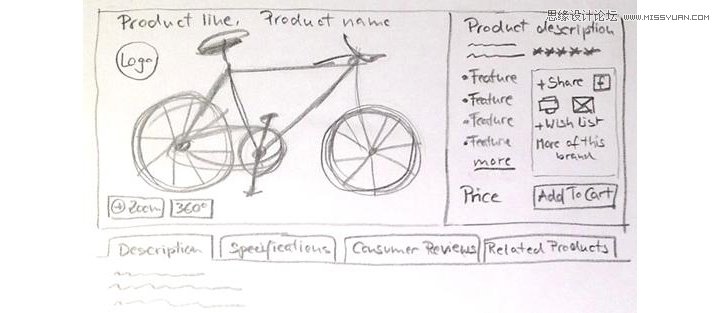 思缘设计论坛 WWW.MISSYUAN.COM
Product line, Product name
Logo
Zoom
360°
Product description
*****
•Feature
•Feature
•Feature
•Feature
more
+Share f
+Wish List
More of this
brand
Price
Add To Cart
Description
Specifications
Consumer Reviews
Related Products